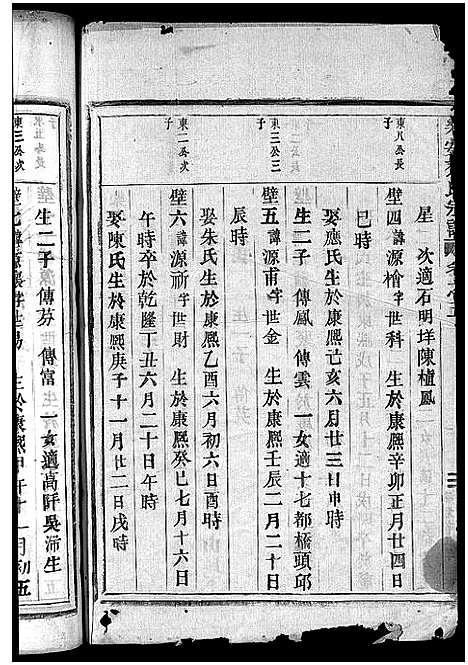 星 次適石明垟陳植鳳
東八公長子
壁四諱源檜字世科 生於康熙辛卯正月廿四日
巳時
娶應氏生於康熙己亥六月廿三日申時
生二子 傳鳳 傳雲 一女適十七都橋頭邱
東公三子
壁五諱源甫字世金 生於康熙壬辰二月二十日
辰時
娶朱氏生於康熙乙酉六月初六日酉時
東二公次子
壁六諱源祈字世財 生於康熙癸巳七月十六日
午時卒於乾隆丁丑六月二十日午時
娶陳氏生於康熙庚子十一月廿二日戌時
生二子 傳芬 傳富 一女適高阡吳沛生
東三公次